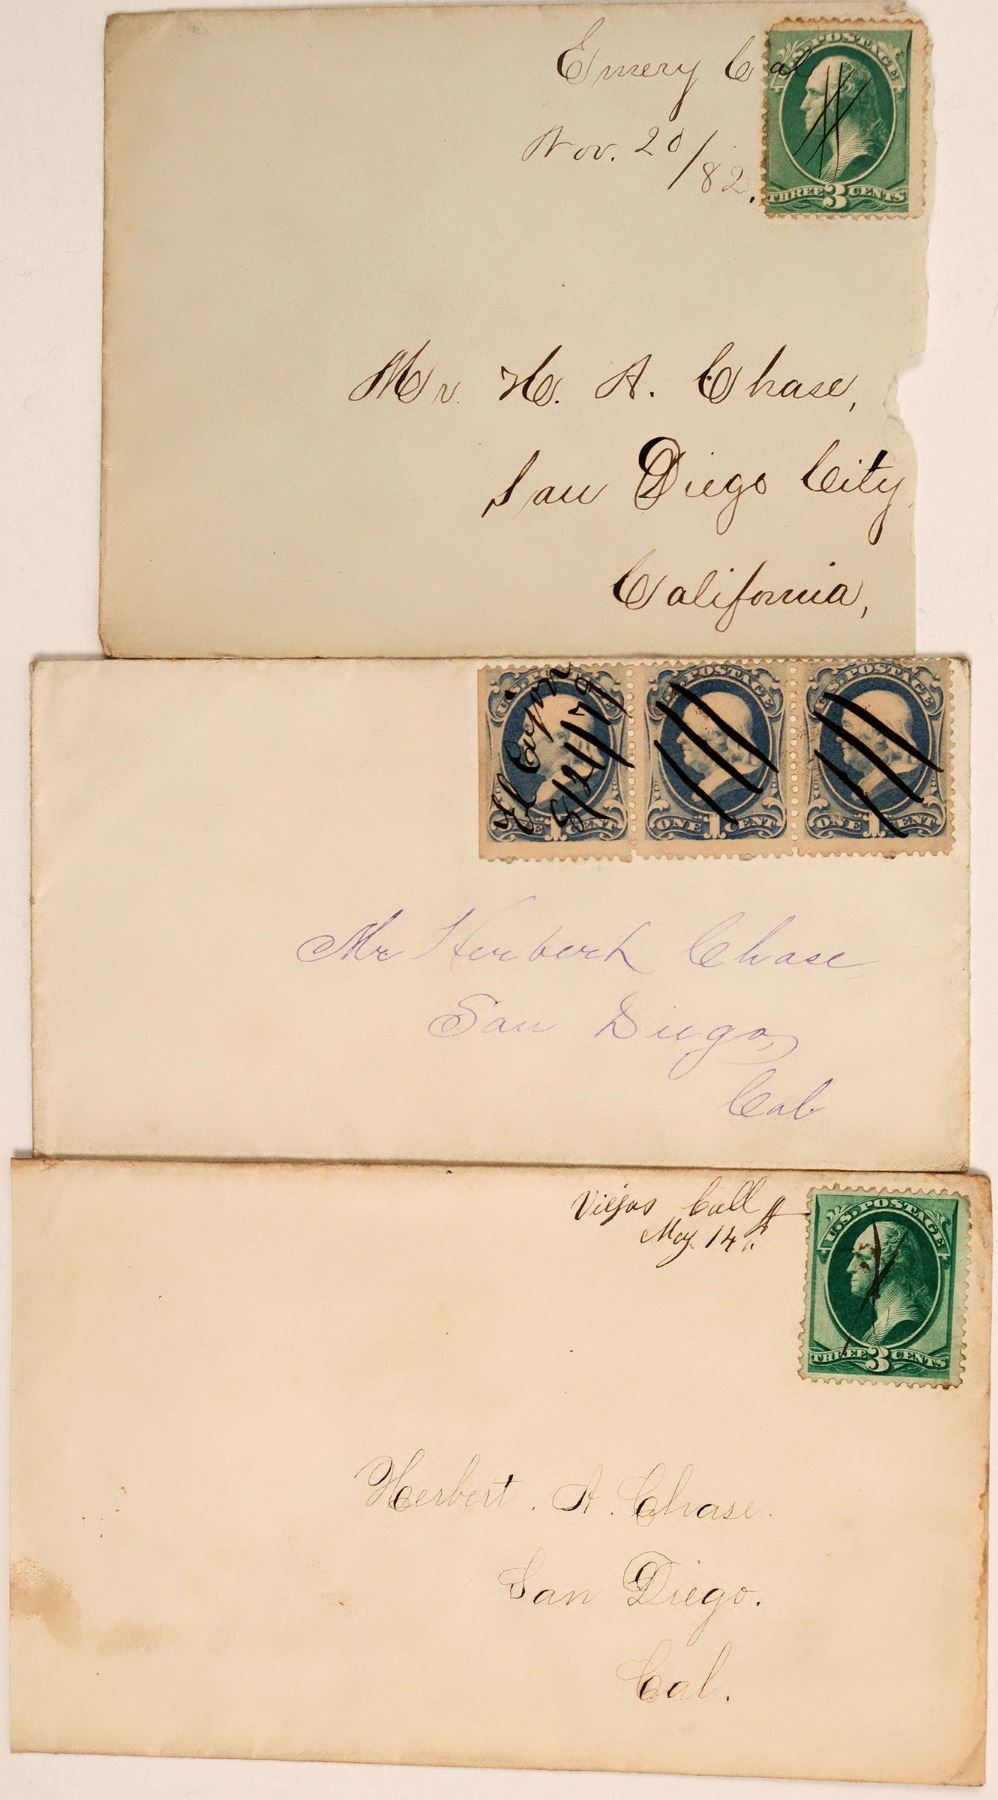 Emery Cal
Nov. 20/82.
U.S. POSTAGE
THREE 3 CENTS
Mr. H. A. Chase,
San Diego City
California,
El Cajon
8/21/79
ONE 1 CENT
U.S. POSTAGE
ONE 1 CENT
U.S. POSTAGE
ONE 1 CENT
Mr Herbert Chase
San Diego,
Cal
Viejas Call
May 14
U.S. POSTAGE
THREE 3 CENTS
Herbert. A. Chase.
San Diego.
Cal.